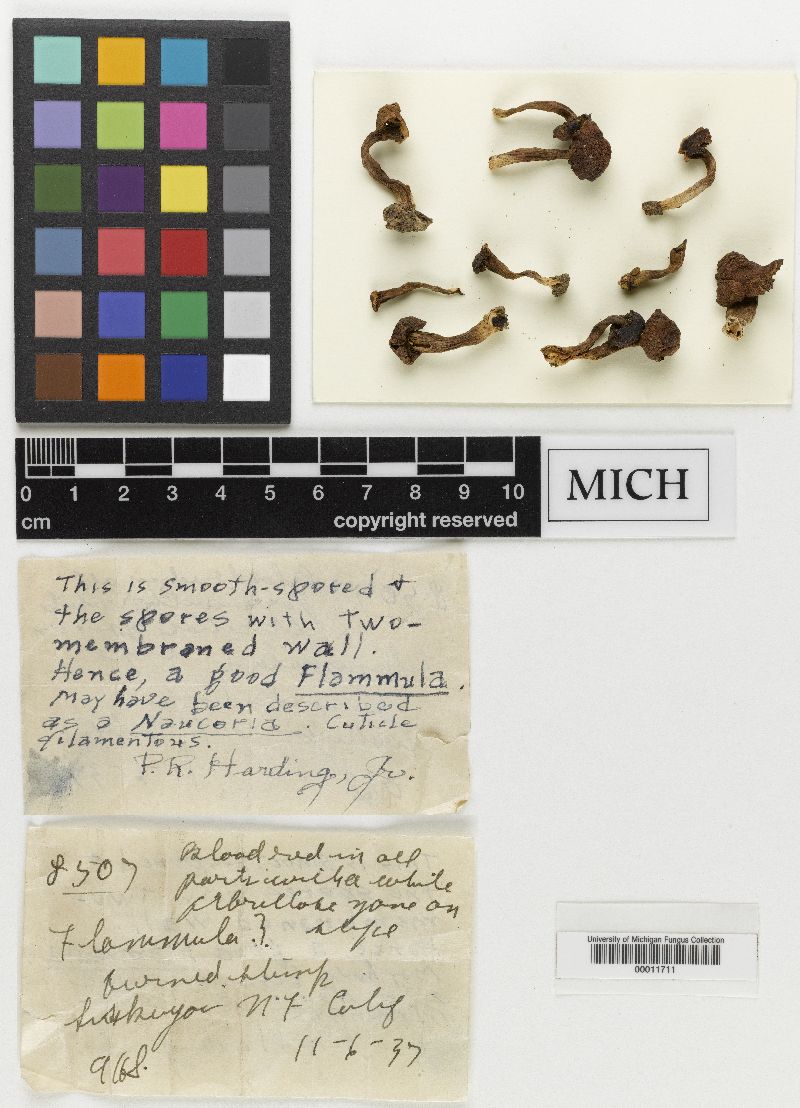 0 1 2 3 4 5 6 7 8 9 10
cm
copyright reserved
MICH
This is smooth-spored &
the spores with two-
membraned wall.
Hence, a good Flammula.
May have been described
as a Naucoria. Cuticle
filamentous.
P.R. Harding, Jr.
8507
Blood red in all
parts with a white
fibrillose zone on
stipe
Flammula?
burned stump
Siskiyou N.F. Calif
11-6-37
University of Michigan Fungus Collection
00011711